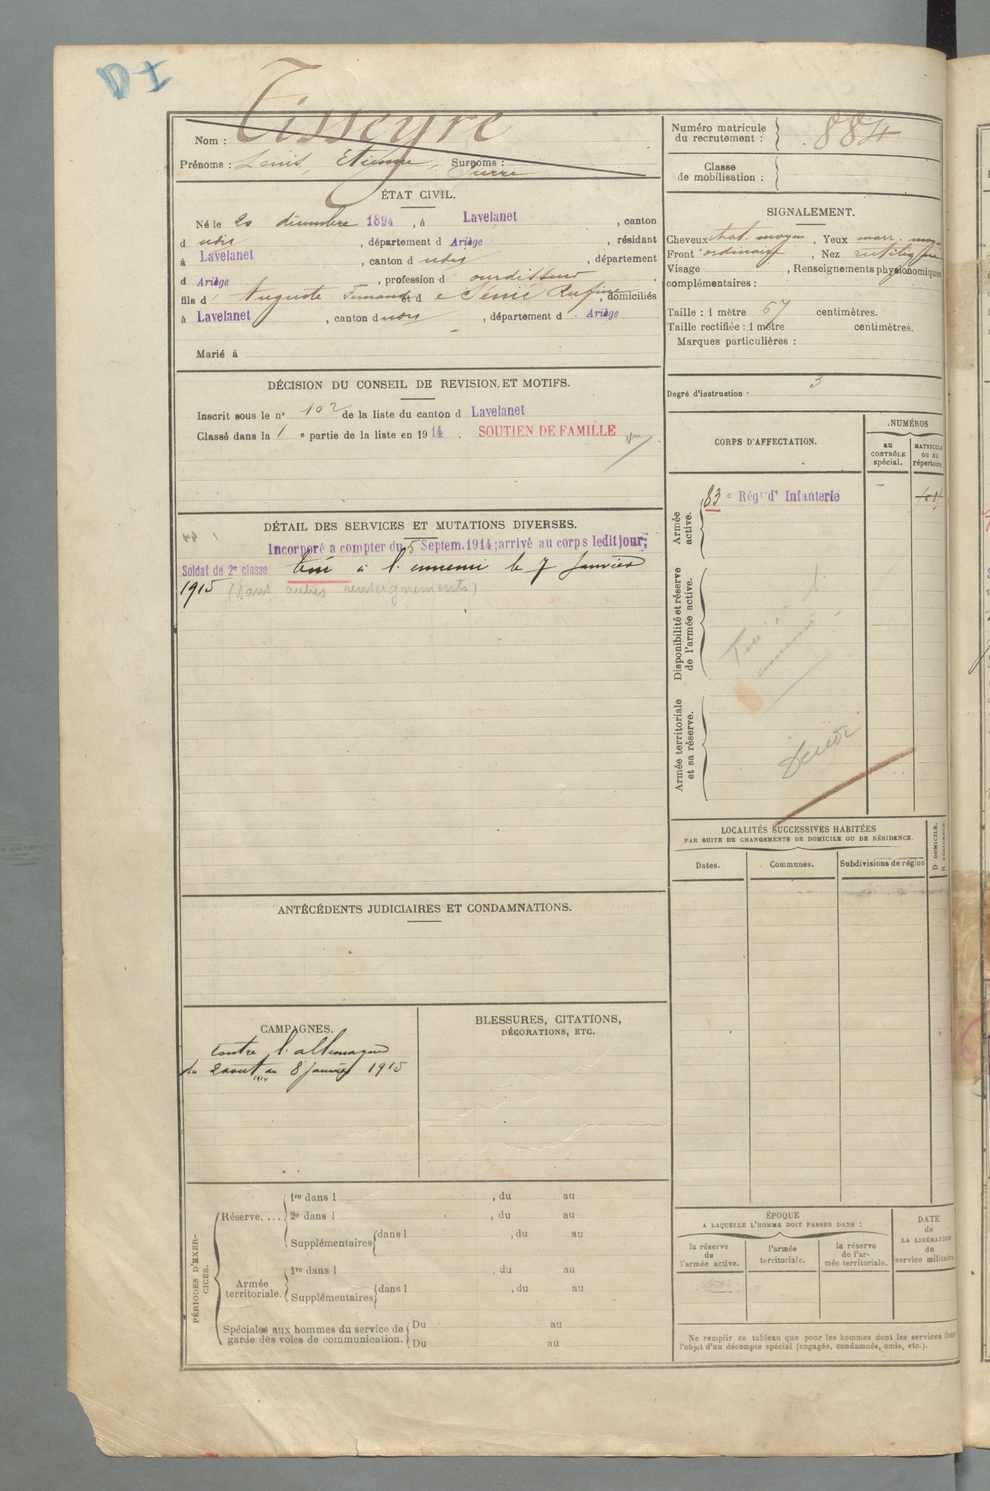 DI
Nom : Tisseyre
Prénoms : Louis, Etienne, Surnoms : Pierre
Numéro matricule du recrutement : 884
Classe de mobilisation :
ÉTAT CIVIL.
Né le 20 décembre 1894, à Lavelanet, canton
d udis, département d Ariège, résidant
à Lavelanet, canton d udis, département
d Ariège, profession d' ourdisseur
fils d' Auguste Fernand et d e Sénié Rufine, domiciliés
à Lavelanet, canton d udis, département d Ariège
Marié à
SIGNALEMENT.
Cheveux chat. moyen, Yeux marr. moy.
Front ordinaire, Nez rectiligne
Visage , Renseignements physionomiques
complémentaires :
Taille : 1 mètre 57 centimètres.
Taille rectifiée : 1 mètre centimètres.
Marques particulières :
Degré d'instruction : 3
DÉCISION DU CONSEIL DE REVISION ET MOTIFS.
Inscrit sous le n° 102 de la liste du canton d Lavelanet
Classé dans la 1 e partie de la liste en 1914. SOUTIEN DE FAMILLE
DÉTAIL DES SERVICES ET MUTATIONS DIVERSES.
Incorporé a compter du 5 Septem. 1914; arrivé au corps ledit jour;
Soldat de 2e classe tué à l'ennemi le 7 Janvier
1915 (sans autres renseignements)
CORPS D'AFFECTATION.
NUMÉROS
au CONTRÔLE spécial.
MATRICULE OU DU répertoire.
Armée active.
83e Régt d' Infanterie
Disponibilité et réserve de l'armée active.
Tué à l'
ennemi
Armée territoriale et sa réserve.
LOCALITÉS SUCCESSIVES HABITÉES
PAR SUITE DE CHANGEMENTS DE DOMICILE OU DE RÉSIDENCE.
Dates.
Communes.
Subdivisions de région
D DOMICILE.
R RÉSIDENCE.
ANTÉCÉDENTS JUDICIAIRES ET CONDAMNATIONS.
CAMPAGNES.
Contre l'allemagne
du 2 aout 1914 au 8 janvier 1915
BLESSURES, CITATIONS,
DÉCORATIONS, ETC.
PÉRIODES D'EXERCICES.
Réserve....
1re dans l , du au
2e dans l , du au
Supplémentaires dans l , du au
Armée territoriale.
1re dans l , du au
Supplémentaires dans l , du au
Spéciales aux hommes du service de Du au
garde des voies de communication. Du au
ÉPOQUE
A LAQUELLE L'HOMME DOIT PASSER DANS :
la réserve de l'armée active.
l'armée territoriale.
la réserve de l'armée territoriale.
DATE de LA LIBÉRATION du service militaire.
Ne remplir ce tableau que pour les hommes dont les services font
l'objet d'un décompte spécial (engagés, condamnés, omis, etc.).